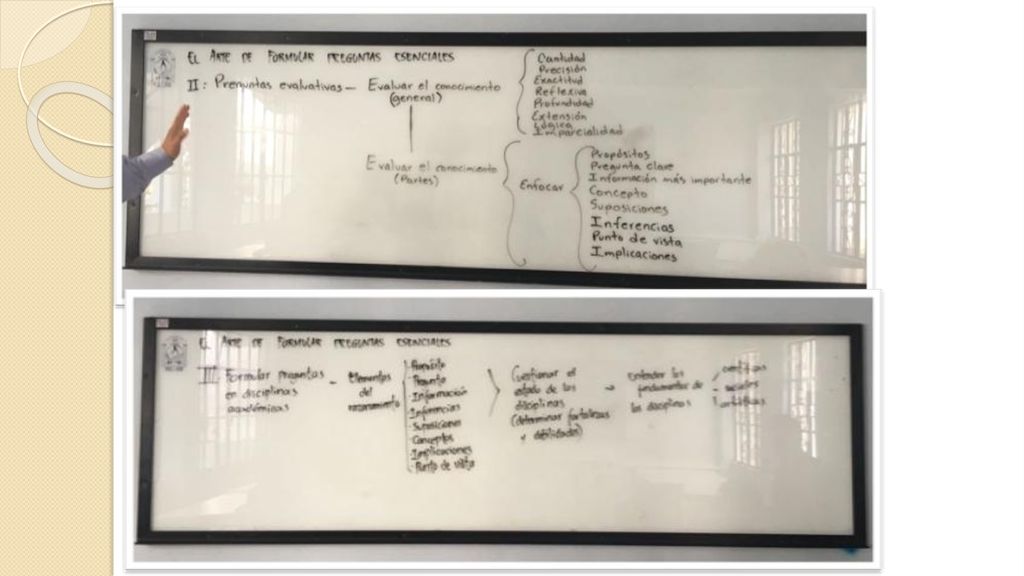 EL ARTE DE FORMULAR PREGUNTAS ESENCIALES
II: Preguntas evaluativas - Evaluar el conocimiento
(general)
Cantidad
Precisión
Exactitud
Reflexiva
Profundidad
Extensión
Lógica
Imparcialidad
Evaluar el conocimiento
(Partes)
Enfocar
Propósitos
Pregunta clave
Información más importante
Concepto
Suposiciones
Inferencias
Punto de vista
Implicaciones
EL ARTE DE FORMULAR PREGUNTAS ESENCIALES
III. Formular preguntas
en disciplinas
académicas
- Elementos
del
razonamiento
· Propósito
· Pregunta
· Información
· Inferencias
· Suposiciones
· Conceptos
· Implicaciones
· Punto de vista
Cuestionar el
estado de las
disciplinas
(determinar fortalezas
y debilidades)
→ Entender los
fundamentos de
las disciplinas
- científicas
- sociales
- artísticas